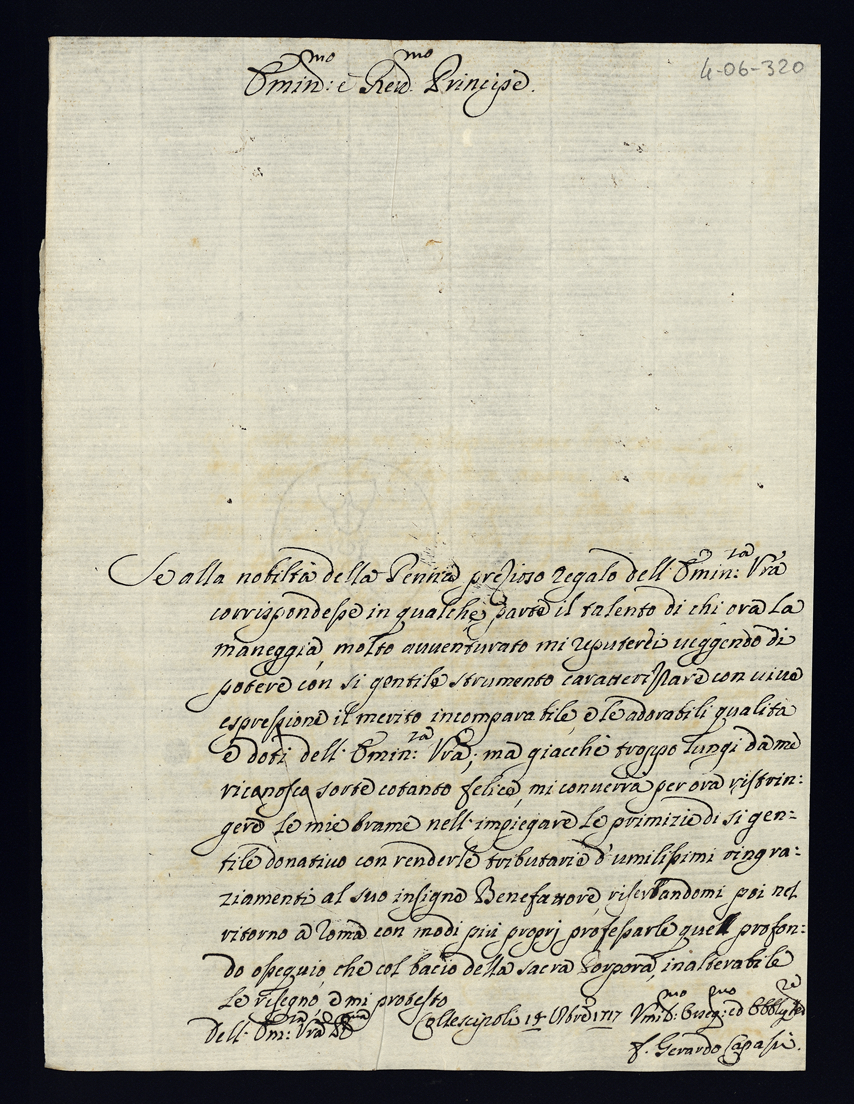 Emin:mo è Reud.mo Principe.
4-06-320
Se alla nobiltà della Penna prezioso regalo dell'Emin:za Vra
corrispondesse in qualche parte il talento di chi ora la
maneggia, molto avventurato mi reputerei veggendo di
potere con si gentile strumento caratterizzare con viue
espressione il merito incomparabile, e le adorabili qualità
e doti dell' Emin:za Vra; ma giacchè troppo lungi da me
riconosco sorte cotanto felice, mi conuerrà per ora ristrin:
gere le mie brame nell'impiegare le primizie di si gen:
tile donatiuo con renderle tributarie d'umilissimi ringra:
ziamenti al suo insigne Benefattore, riserbandomi poi nel
ritorno a Roma con modi più proprj professarle quell profon:
do ossequio, che col bacio della sacra Porpora, inalterabile
le rasegno, e mi protesto
Dell' Em:za Vra Collescipoli 14 1717 Vmil:mo Osseq:mo ed
f. Gerardo Capassi.